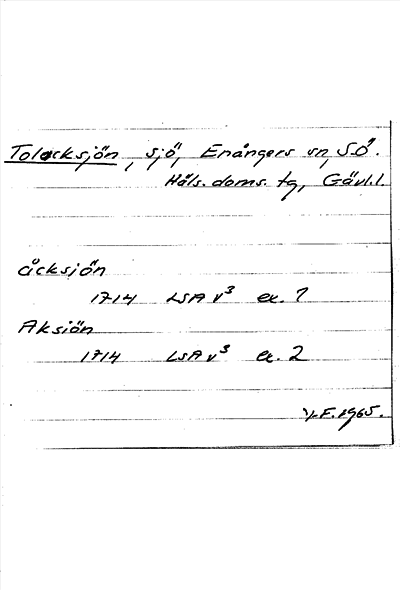 Tolacksjön, sjö, Enångers sn, SÖ.
Häls. doms. tg, Gävl.l.
åcksjön
1714 LSA v³ ex. 1
Aksiön
1714 LSA v³ ex. 2
F. 1965.